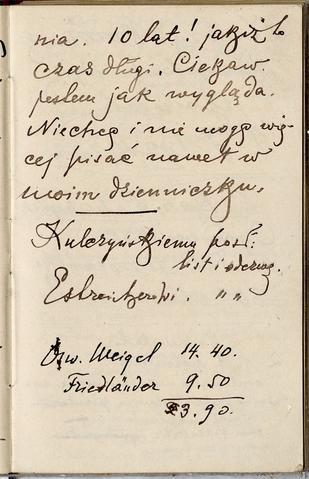 nia. 10 lat! jakżiż to
czas długi. Ciekaw
jestem jak wygląda.
Niechcę i nie mogę wię-
cej pisać nawet w
moim dzienniczku.
Kulczyńskiemu posł:
list i odezwę.
Estreicherowi. " "
Ozw. Weigel 14.40.
Friedländer 9.50
23.90.